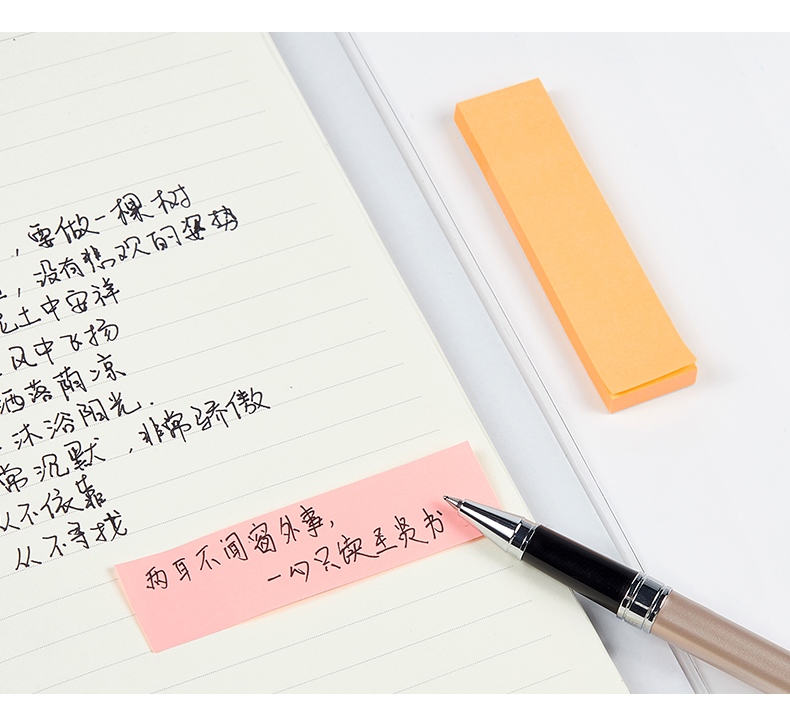 ，要做一棵树
，没有悲欢的姿势
土中安祥
风中飞扬
洒落荫凉
沐浴阳光.
常沉默，非常骄傲
从不依靠
从不寻找
两耳不闻窗外事,
一心只读圣贤书